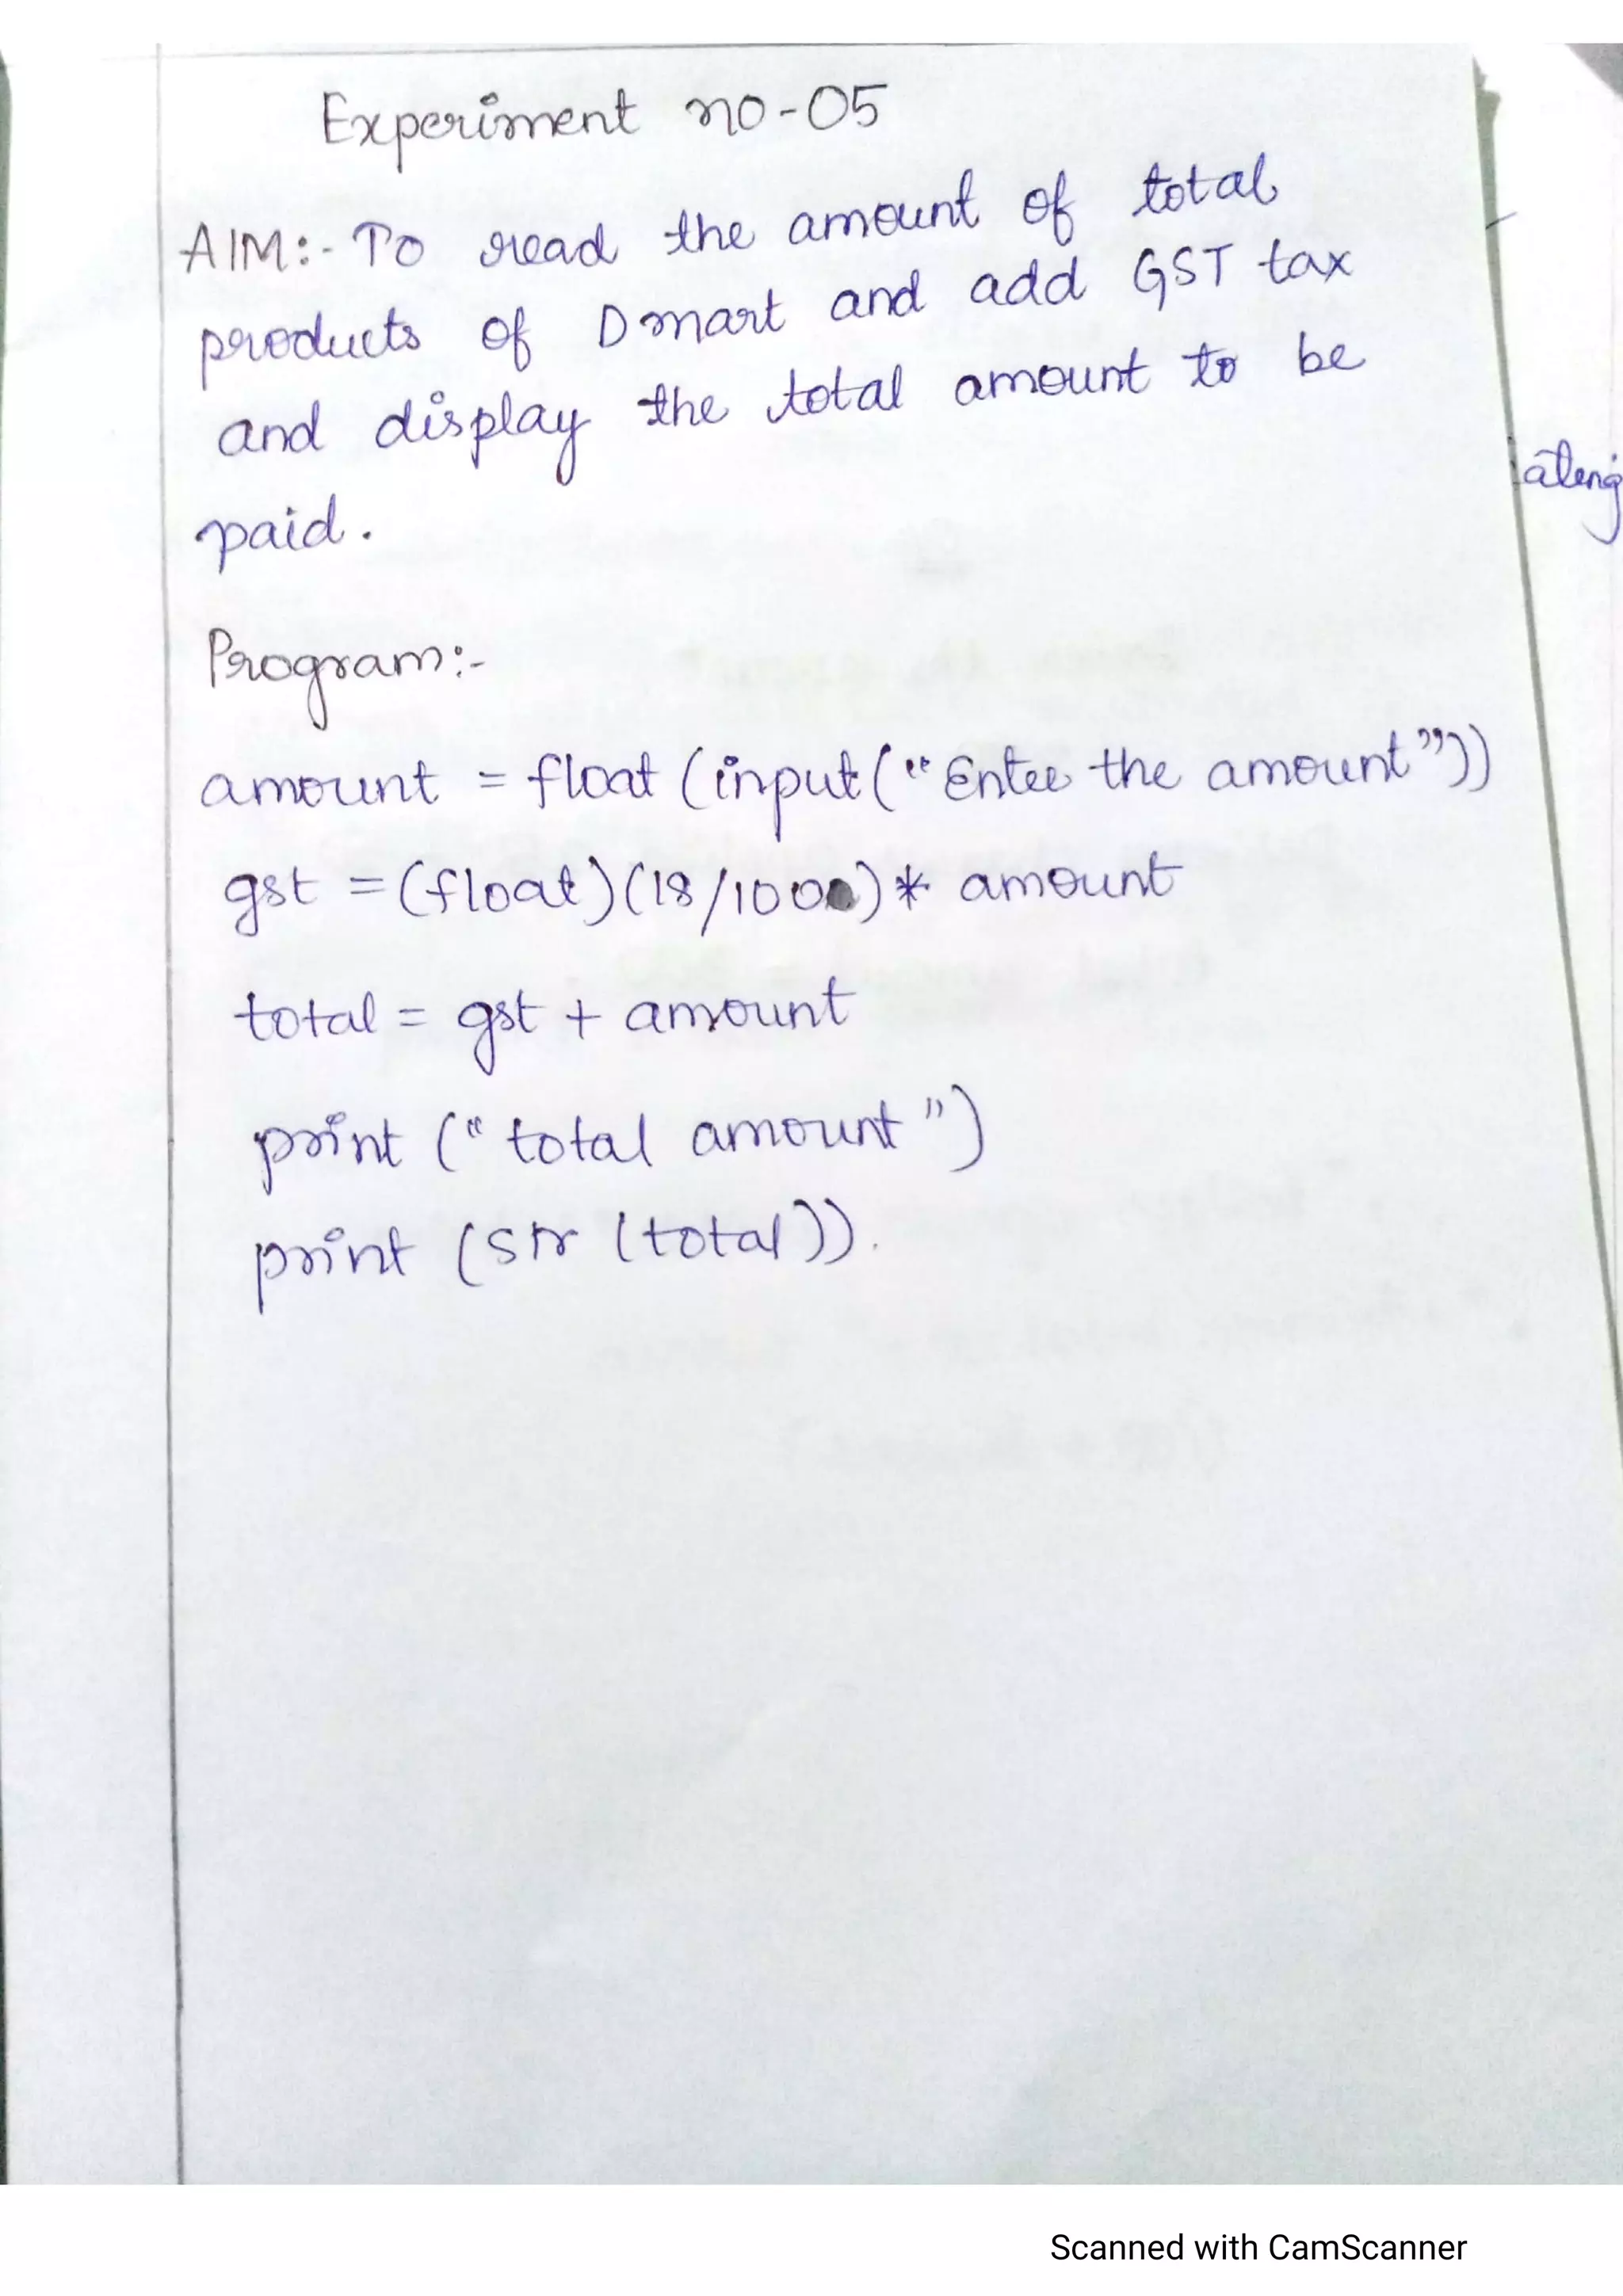 Experiment no-05
AIM:- To read the amount of total
products of Dmart and add GST tax
and display the total amount to be
paid.
Program:-
amount = float (input("Enter the amount"))
gst = (float)(18/100) * amount
total = gst + amount
print ("total amount")
print (str (total)).
Scanned with CamScanner